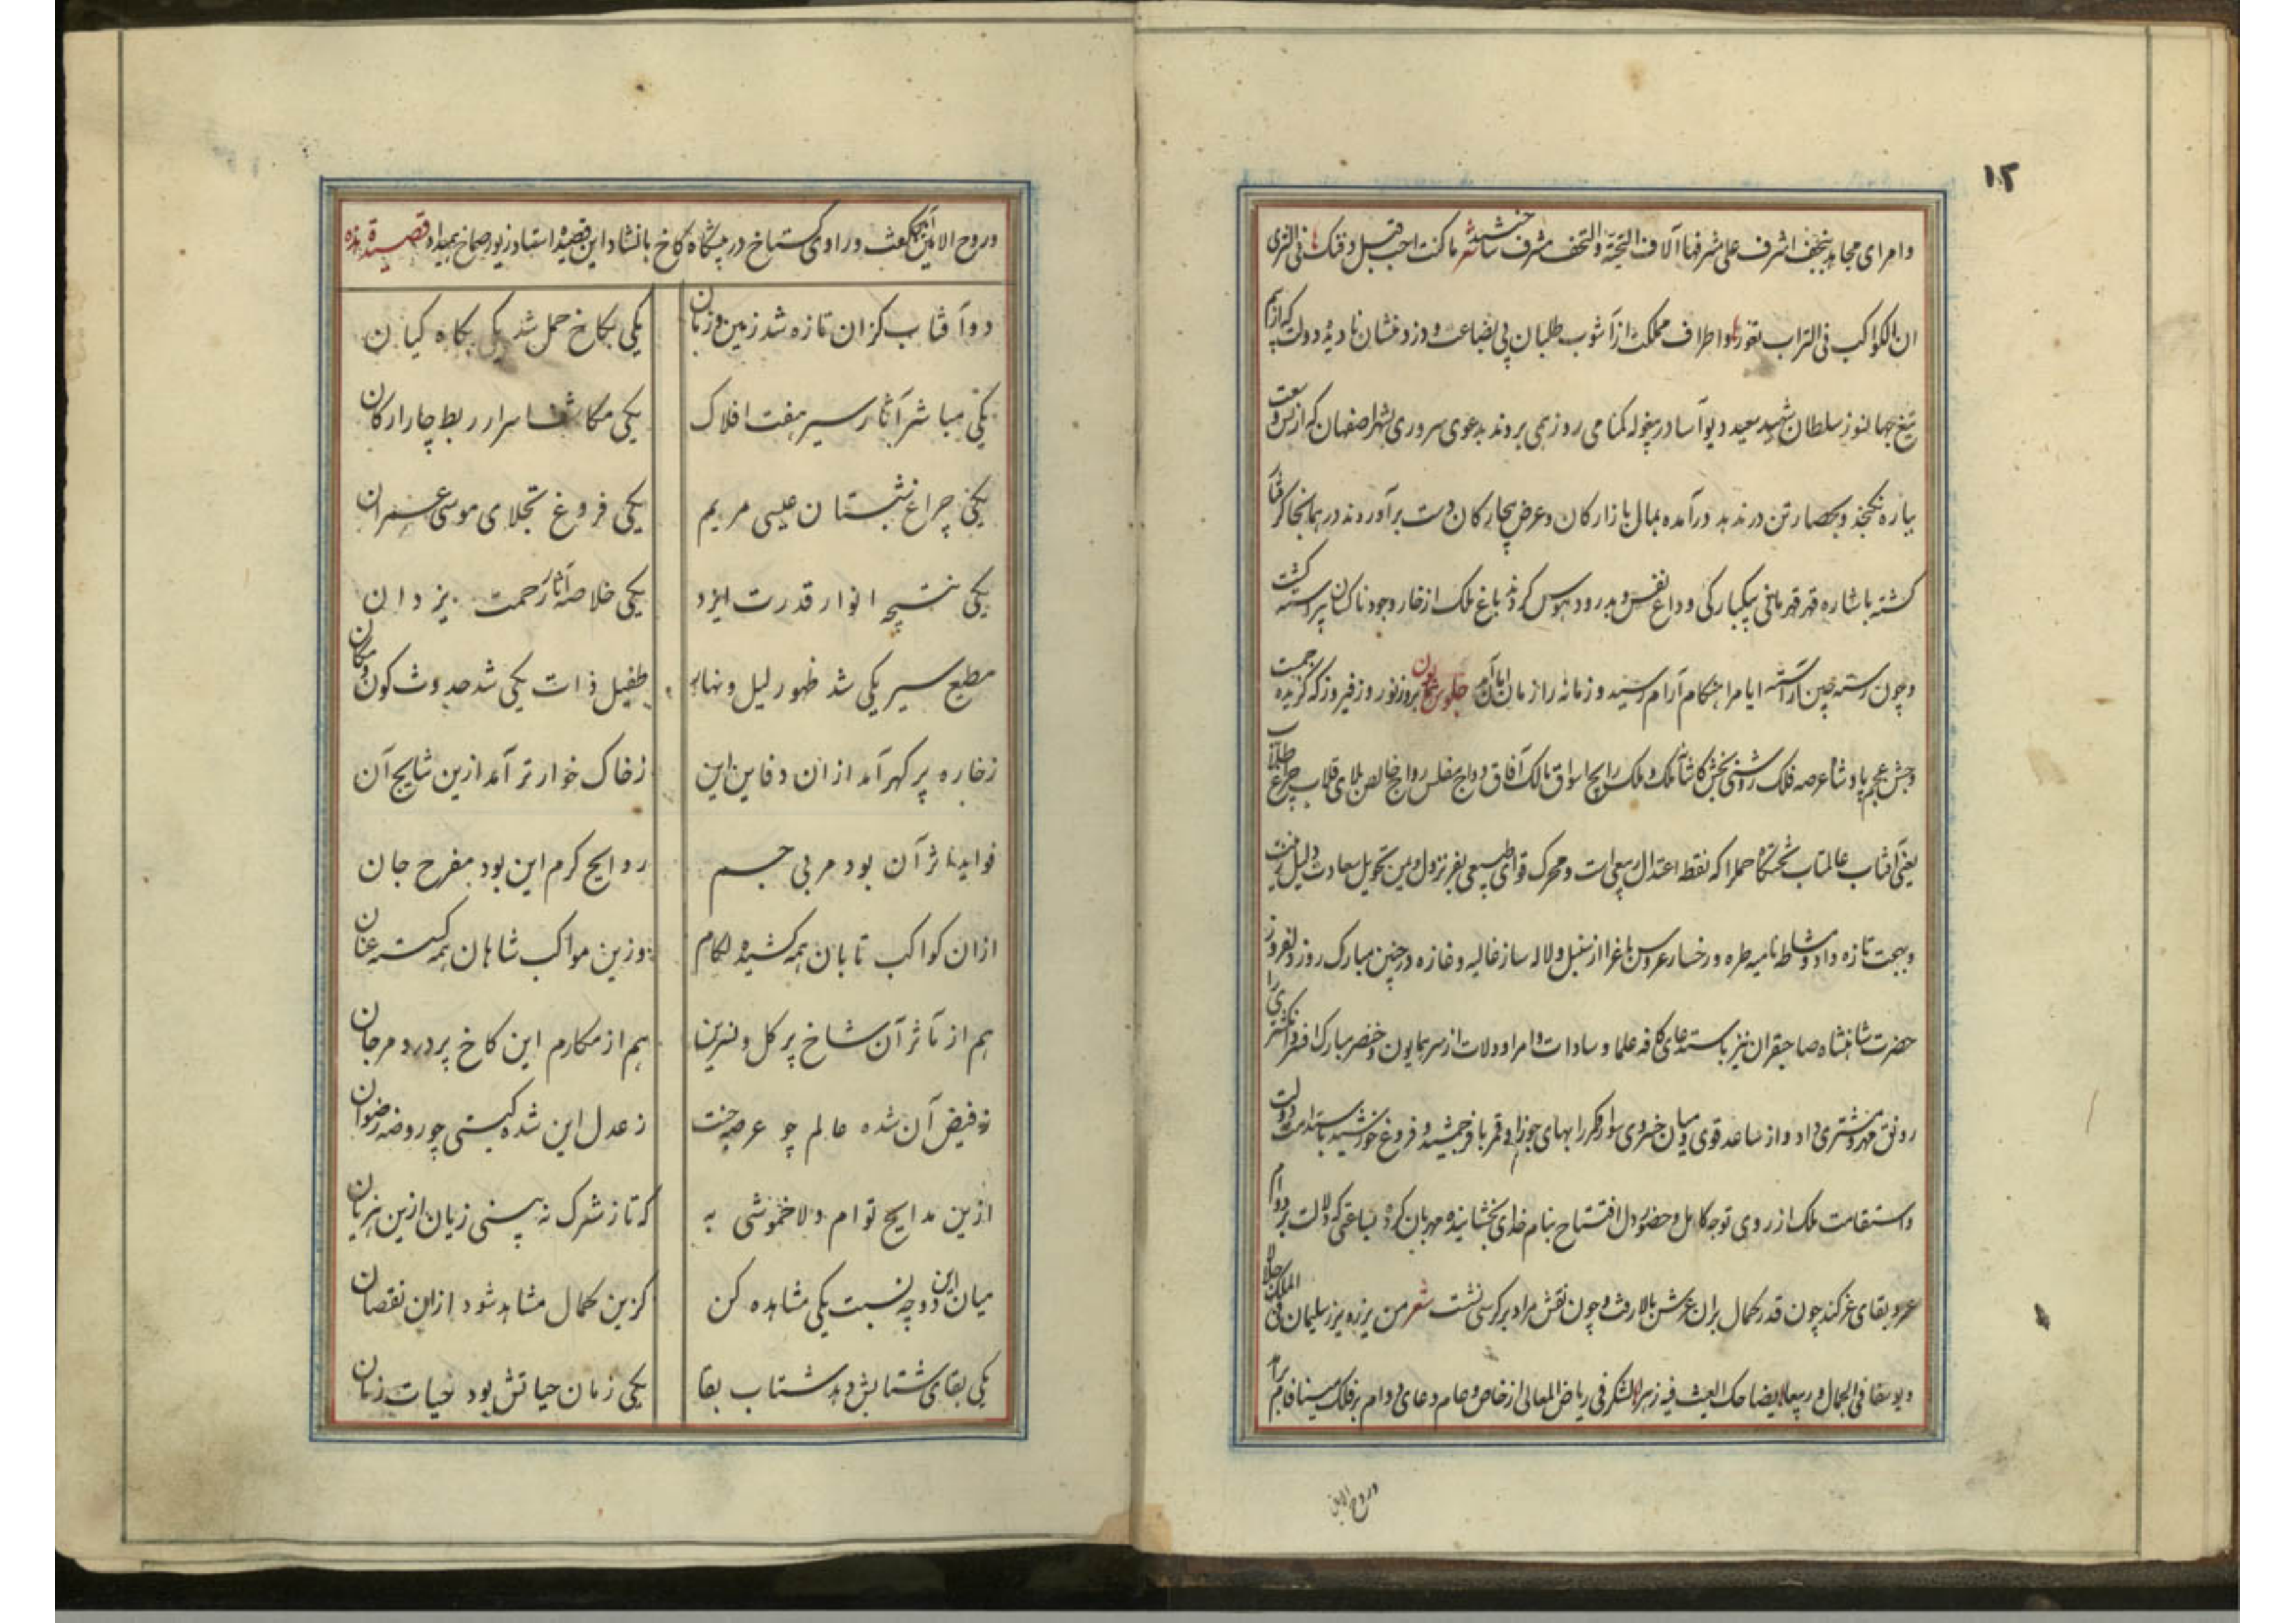 ۱۲
وامرای مجاهد بنجف اشرف علی مشرفها آلاف التحیة والتحف مشرف ساختند شعر ما کنت احسب قبل دفنک فی الثری
ان الکواکب فی التراب تغور واطراف مملکت از آشوب طلبان بی بضاعت و دزد منشان نادیده دولت که از بیم
تیغ جهانسوز سلطان شهید سعید دیوآسا در بیغوله کمنامی روز همی بردند بدعوی سروری بشهر اصفهان که از وسعت
بباره نکنجد و بحصار تن در ندهد درآمده بمال بازارکان و عرض بیچارکان دست برآوردند در همانجا کرفتار
کشته باشاره قهر قهرمانی بیکبارکی وداع نفس و بدرود هوس کردند باغ ملک از خار وجود ناکسان پیراسته کشت
و چون رسته چین آراسته ایام را هنکام آرام رسید و زمانه را از مان امان آمد جلوس همایون بروز نوروز فیروز که کزیده
وجشن عجم پادشاه عرصه فلک روشنی بخش کاشانه ملک و ملک رایج اسواق ممالک آفاق رواج مفلس رواج خالص طلای قلاب چراغ
یعنی آفتاب عالمتاب تختکاه حمل را که نقطه اعتدال ربیعی است و محرک قوای طبیعی بفر نزول و یمن تحویل سعادت دلیل زینت
و بهجت تازه داد و مشاطه نامیه طره و رخسار عروس باغ را از سنبل و لاله ساز غالیه و غازه در چنین مبارک روز دلفروز
حضرت شاهنشاه صاحبقران نیز باستدعای کافه علما و سادات و امرا و ولات از سر همایون و خنصر مبارک افسر و انکشتری را
رونق مهر و مشتری داد و از ساعد قوی و میان خسروی سوار و کمر را بهای جوزا و قمر با فر جمشید و فروغ خورشید باستدامت دولت
و استقامت ملک از روی توجه کامل و حضور دل افتتاح بنام خدای بخشاینده مهربان کرده بساعتی که دلالت بر دوام
عمر و بقای عز کند چون قدر کمال بران عرش بالا رفت و چون نقش مراد بر کرسی نشست شعر من یزره یزر سلیمان فی الملک جلالا
و یوسفا فی الجمال و ربیعا یضاحک الغیث فیه زهر الشکر فی ریاض المعالی از خاص و عام دعای دوام بر فلک مینافام برآمد
وروح الامین
وروح الامین آمین کفت و راوی کستاخ در پیشکاه کاخ بانشاد این قصیده استاد زیور صماخ بمیداد قصیدة هذه
دو آفتاب کزان تازه شد زمین و زمان
یکی بکاخ حمل شد یکی بکاه کیان
یکی مباشر آثار سیر هفت افلاک
یکی مکاشف اسرار ربط چار ارکان
یکی چراغ شبستان عیسی مریم
یکی فروغ تجلای موسی عمران
یکی نتیجه انوار قدرت ایزد
یکی خلاصه آثار رحمت یزدان
مطیع سیر یکی شد ظهور لیل و نهار
طفیل ذات یکی شد حدوث کون و مکان
زخاره پر کهر آمد ازان دفاین این
زخاک خوارتر آمد ازین نتایج آن
فواید نثر آن بود مربی جسم
روایح کرم این بود مفرح جان
ازان کواکب تابان همه کشیده لکام
وزین مواکب شاهان همه کسسته عنان
هم از تأثر آن شاخ پر کل و نسرین
هم از مکارم این کاخ پر درد مرجان
ز فیض آن شده عالم چو عرصه جنت
ز عدل این شده کیتی چو روضه رضوان
ازین مدایح توام دلا خموشی به
که تا ز شرک نه بینی زیان ازین هزیان
میان این دو چه نسبت یکی مشاهده کن
کزین کمال مشاهد شود ازان نقصان
یکی بقای شتابش دهد شتاب بقا
یکی زمان حیاتش بود حیات زمان